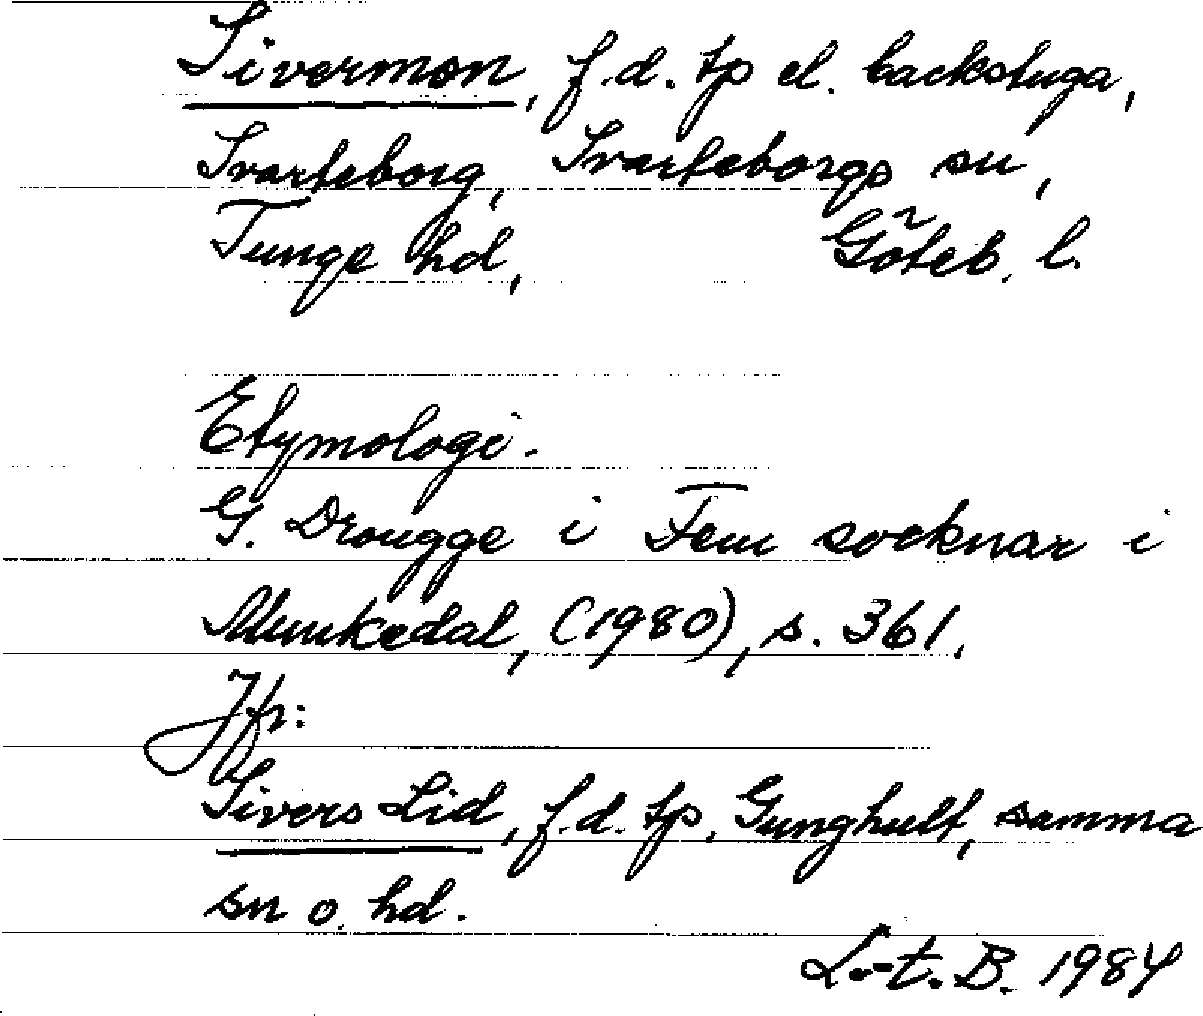 Sivermon, f.d. tp el. backstuga,
Svarteborg, Svarteborgs sn,
Tunge hd, Göteb. l.
Etymologi.
G. Drougge i Fem socknar i
Munkedal, (1980), s. 361.
Jfr:
Sivers Lid, f.d. tp, Gunghult, samma
sn o. hd.
L.-t. B. 1984